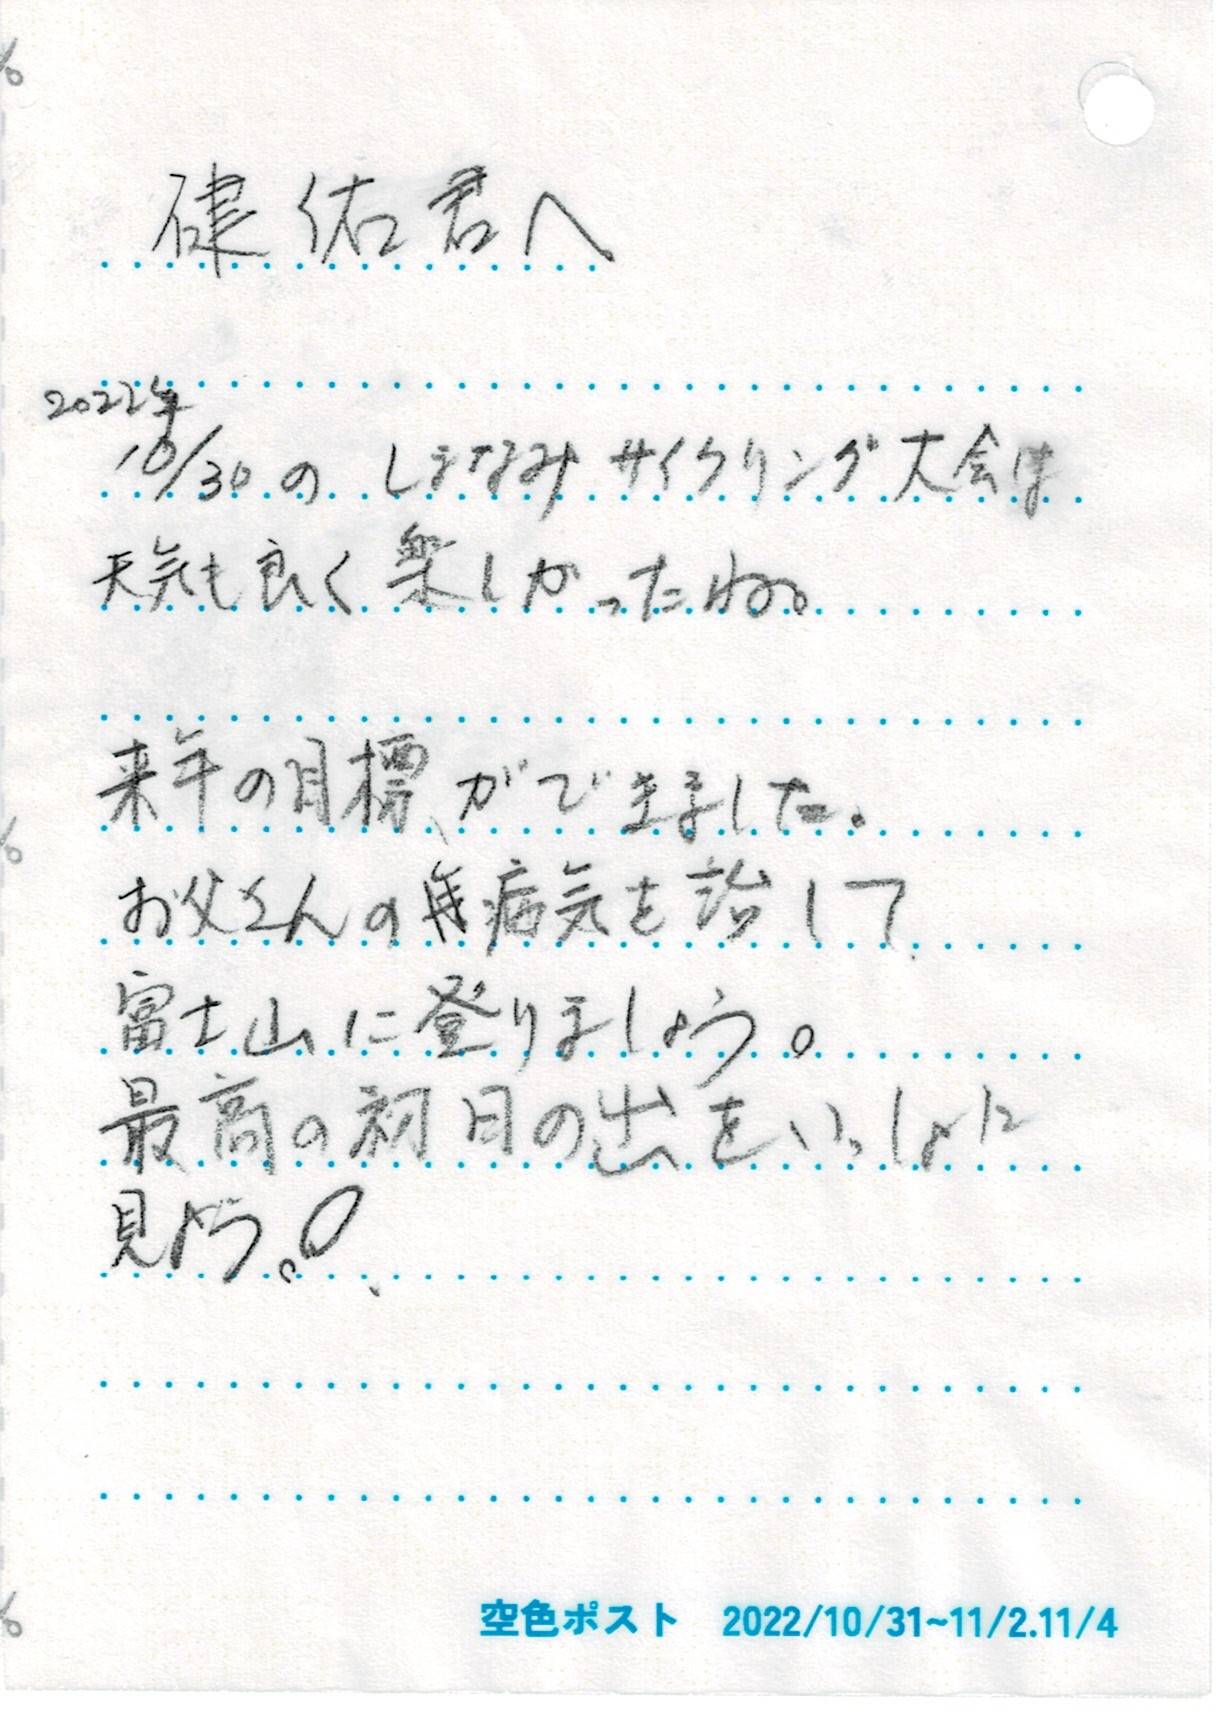 健佑君へ
2022年
10/30の しまなみサイクリング大会は
天気も良く楽しかったね。
来年の目標ができました。
お父さんの病気を治して
富士山に登りましょう。
最高の初日の出をいっしょに
見よう。
空色ポスト 2022/10/31~11/2.11/4